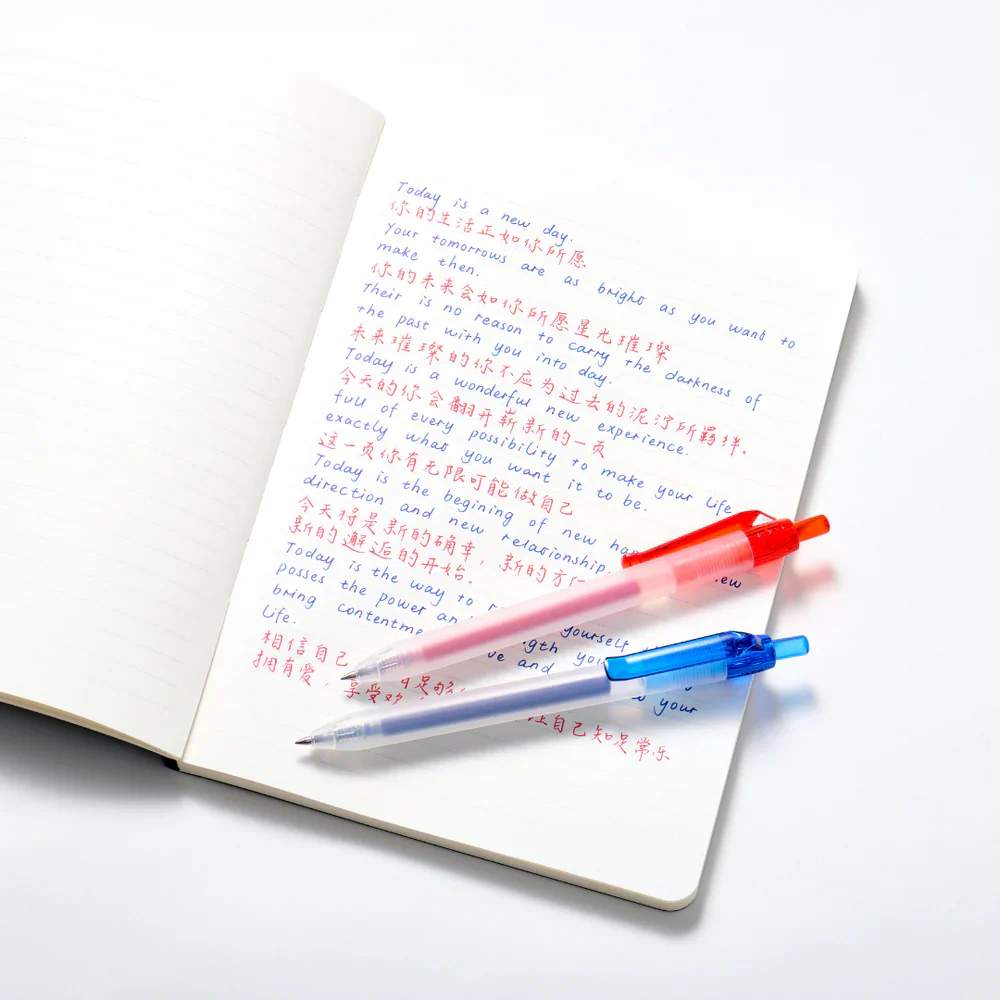 Today is a new day.
你的生活正如你所愿
Your tomorrows are as bright as you want to
make then.
你的未来会如你所愿星光璀璨
Their is no reason to carry the darkness of
the past with you into day.
未来璀璨的你不应为过去的泥泞所羁绊。
Today is a wonderful new experience.
今天的你会翻开崭新的一页
full of every possibility to make your life
exactly what you want it to be.
这一页你有无限可能做自己
Today is the begining of new
direction and new relationship
今天将是新的确幸，新的方
新的邂逅的开始.
Today is the way to yourself
posses the power
bring
life.
and
your
相信自己
拥有爱，享受 自己知足常乐